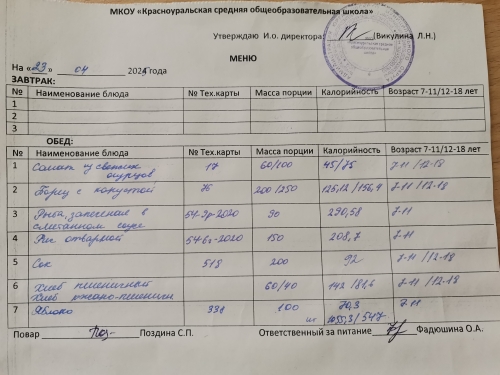 МКОУ «Красноуральская средняя общеобразовательная школа»
Утверждаю И.о. директора (Викулина Л.Н.)
МЕНЮ
На «23» 04 2024 года
ЗАВТРАК:
№ Наименование блюда № Тех.карты Масса порции Калорийность Возраст 7-11/12-18 лет
1
2
3
ОБЕД:
№ Наименование блюда № Тех.карты Масса порции Калорийность Возраст 7-11/12-18 лет
1 Салат из свежих 17 60/100 45/75 7-11 /12-18
огурцов
2 Борщ с капустой 76 200/250 125,12 /156,4 7-11 /12-18
3 Рыба, запеченная в 54-9р-2020 90 290,58 7-11
сметанном соусе
4 Рис отварной 54-6г-2020 150 208,7 7-11
5 Сок 518 200 92 7-11 /12-18
6 Хлеб пшеничный 60/40 142 /81,6 7-11 /12-18
Хлеб ржано-пшеничн
7 Яблоко 331 100 7-11
/547
Повар Поздина С.П. Ответственный за питание Фадюшина О.А.